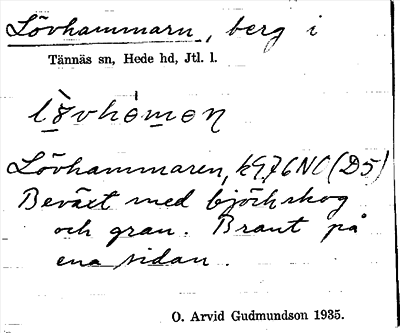 Lövhammarn, berg i
Tännäs sn, Hede hd, Jtl. l.
Lövhammaren, k976NC (D5)
Beväxt med björkskog
och gran. Brant på
ena sidan.
O. Arvid Gudmundson 1935.